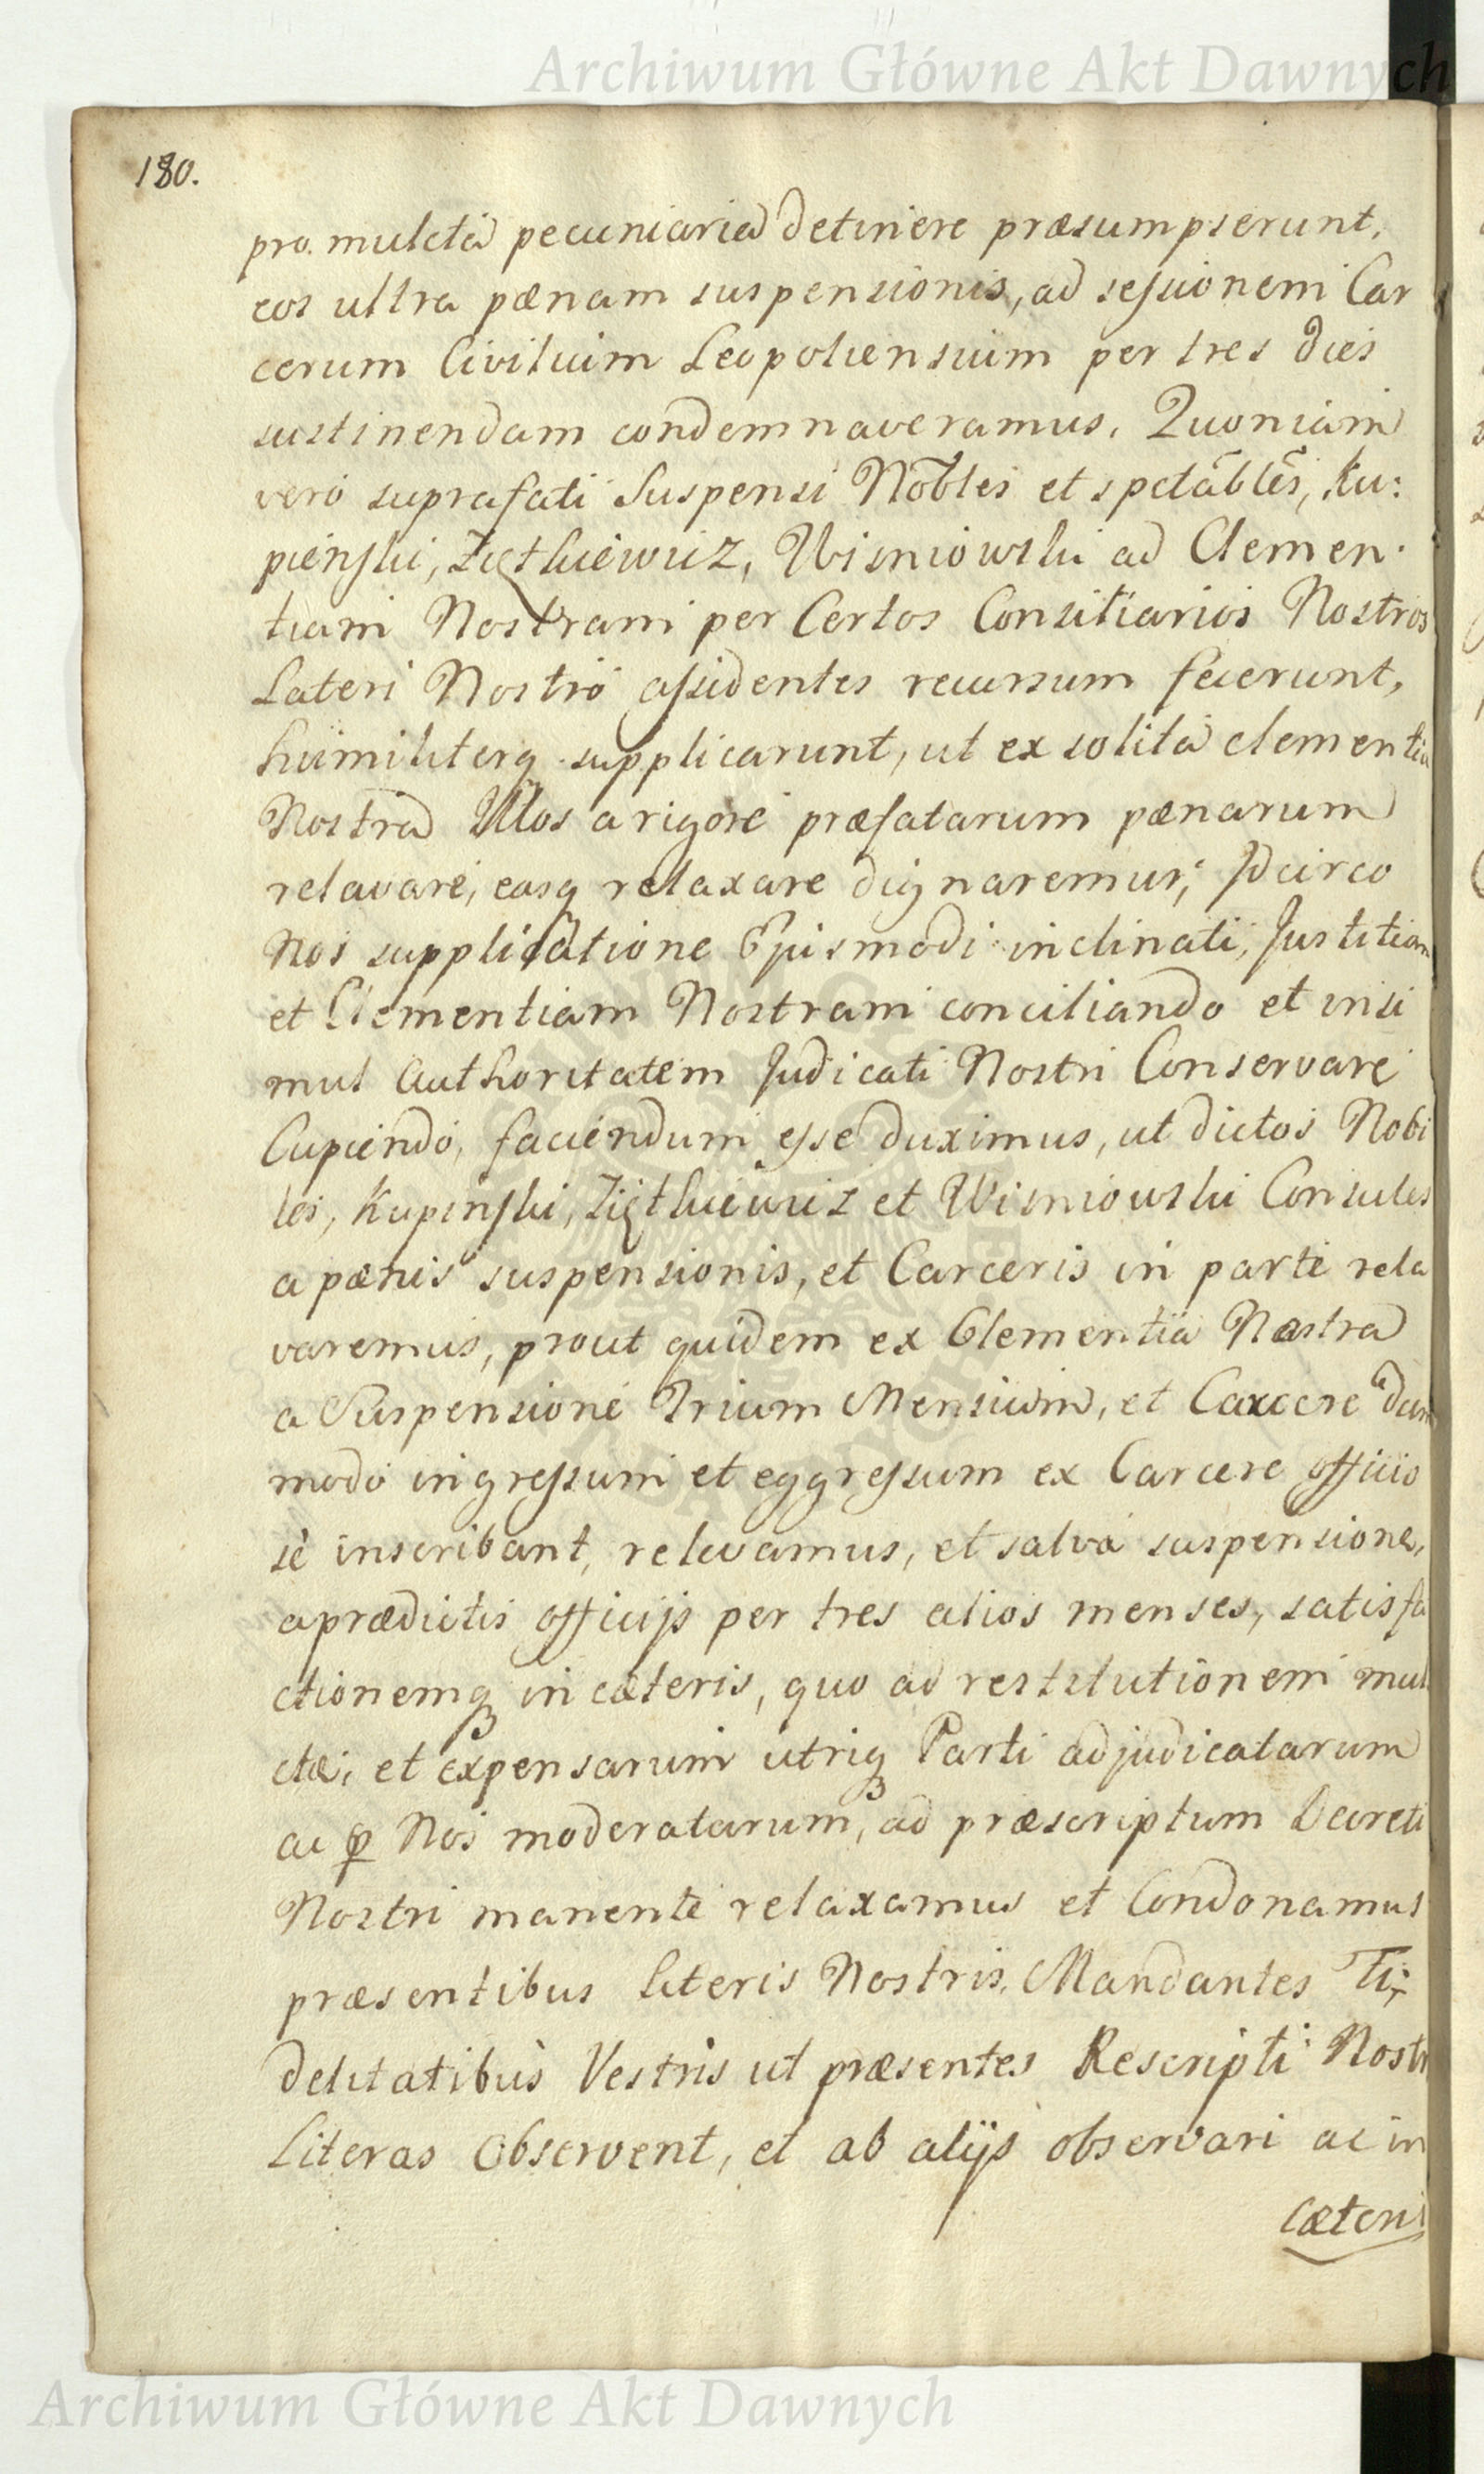 Archiwum Główne Akt Dawnych
180.
pro mulcta pecuniaria detinere præsumpserunt,
eos ultra pænam suspensionis, ad sessionem Car
cerum Civilium Leopoliensium per tres dies
sustinendam condemnaveramus. Quoniam
vero suprafati Suspensi Nobles et spctables, Ku:
pienski, Ziętkiewicz, Wisniowski ad Clemen
tiam Nostram per Certos Consiliarios Nostros
Lateri Nostro assidentes recursum fecerunt,
humiliterq supplicarunt, ut ex solita clementia
Nostra Illos a rigore præfatarum pænarum
relavare, easq relaxare dignaremur; Idcirco
Nos supplicatione Ejusmodi inclinati, Justitiam
et Clementiam Nostram conciliando et insi
mul Authoritatem Judicati Nostri Conservare
Cupiendo, faciendum esse duximus, ut dictos Nobi
les, Kupinski, Ziętkiewicz et Wisniowski Consules
a pænis suspensionis, et Carceris in parte rela
varemus, prout quidem ex Clementia Nostra
a Suspensione Trium Mensium, et Carcere dum
modo ingressum et eggressum ex Carcere officio
se inscribant, relevamus, et salva suspensione,
a prædictis officijs per tres alios menses, satisfa
ctionemq in cæteris, quo ad restitutionem mul
ctæ, et expensarum utriq Parti adjudicatarum
ac p Nos moderatarum, ad præscriptum Decreti
Nostri manente relaxamus et Condonamus
præsentibus literis Nostris. Mandantes Fi:
delitatibus Vestris ut præsentes Rescripti Nostri
Literas Observent, et ab alijs observari ac in
Cæteris
Archiwum Główne Akt Dawnych